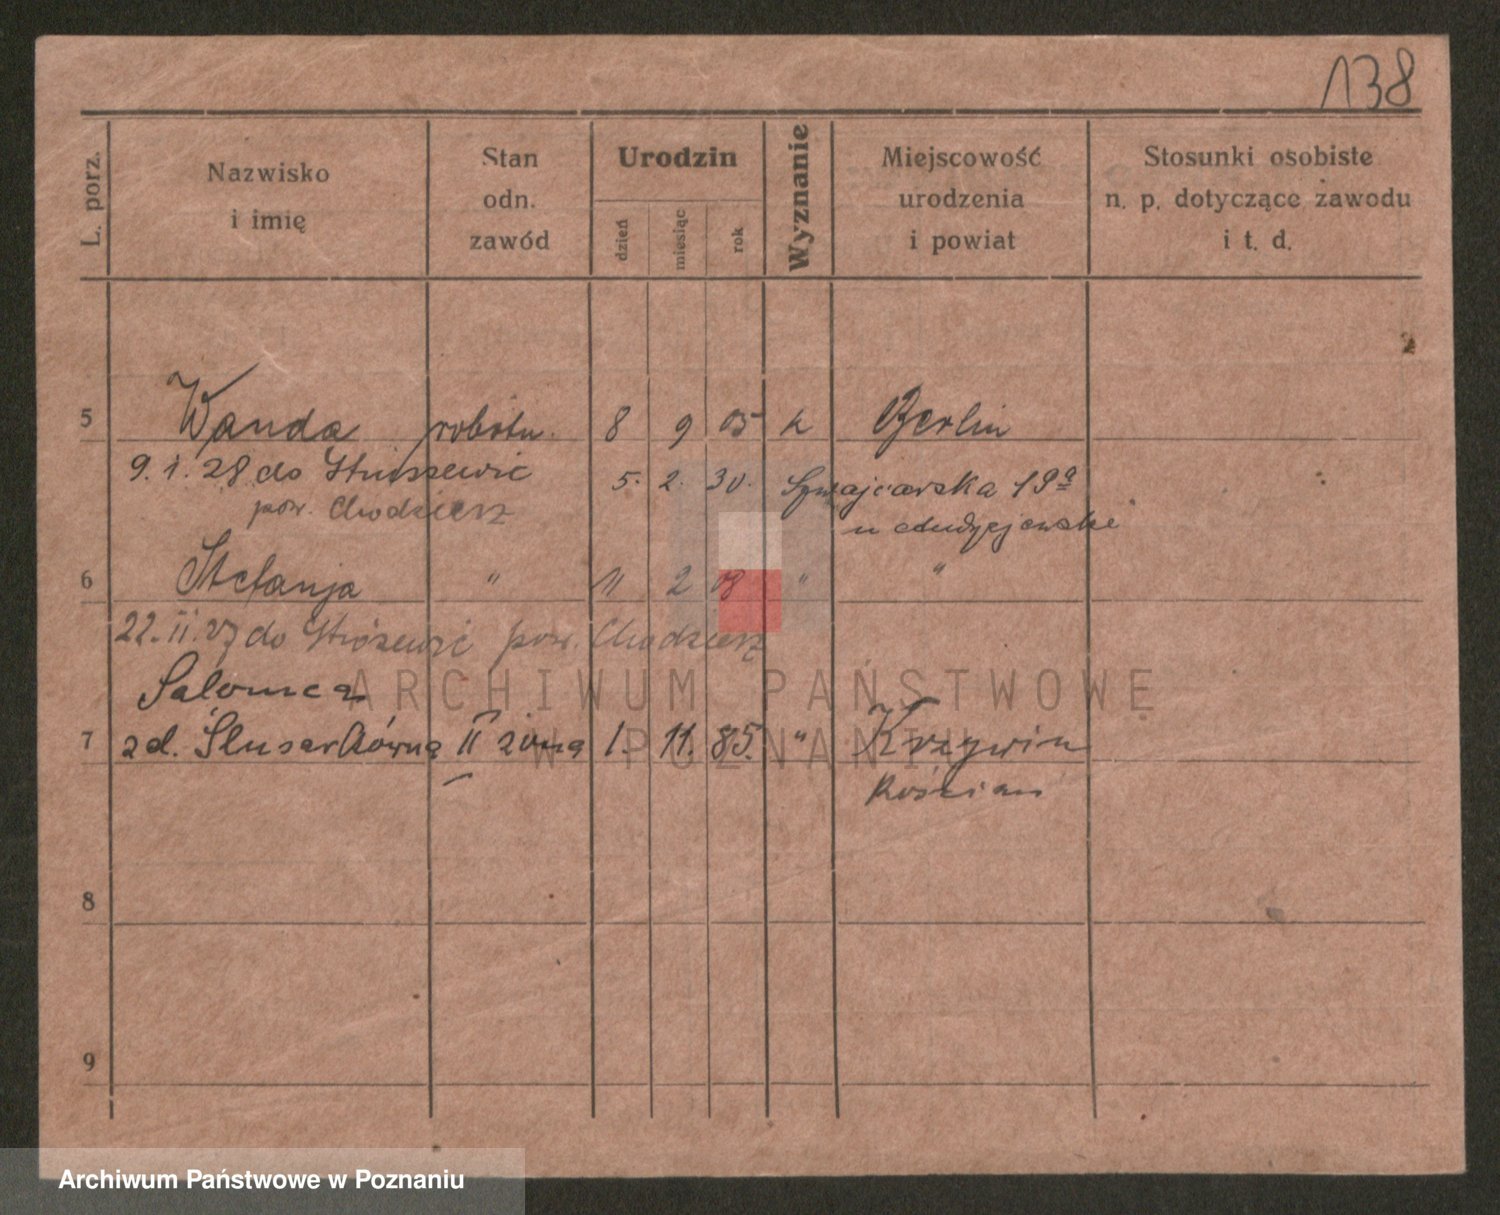 138
L. porz.
Nazwisko
i imię
Stan
odn.
zawód
Urodzin
dzień
miesiąc
rok
Wyznanie
Miejscowość
urodzenia
i powiat
Stosunki osobiste
n. p. dotyczące zawodu
i t. d.
5 Wanda robotn. 8 9 05 k Berlin
9. 1. 28 do 5. 2. 30. Szwajcarska 19a
pow. Chodzież u
6 Stefanja " 11 2 08 " "
22. II. 27 do Strózewic pow. Chodzież
Salomea
7 zd. Ślusarkówna II żona 1. 11. 85. " Krzywin
Kościan
8
9
ARCHIWUM PAŃSTWOWE
W POZNANIU
Archiwum Państwowe w Poznaniu